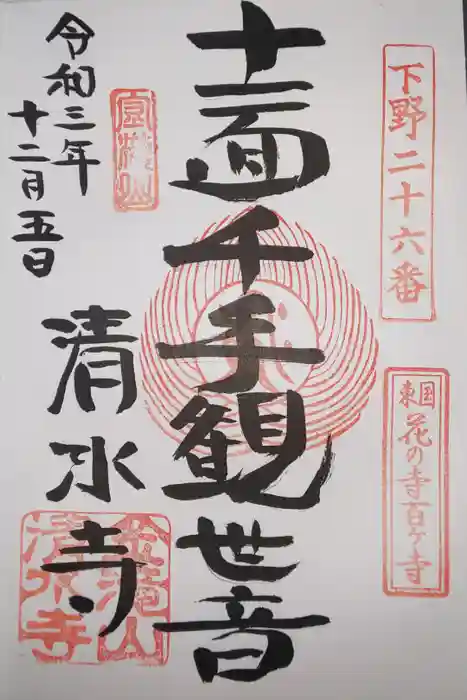 下野二十六番
東国花の寺百ヶ寺
十一面千手観世音
清水寺
令和三年
十二月五日
金瀧山
清水寺